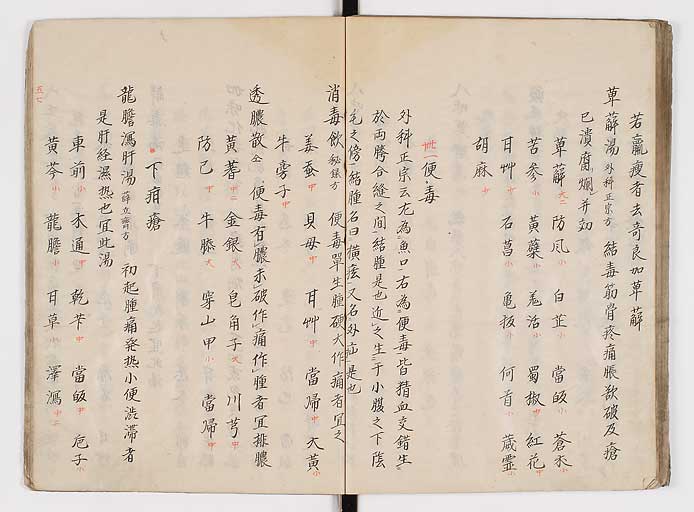 若羸瘦者去奇良加萆薢
萆薢湯 外科正宗方 結毒筋骨疼痛脹欲破及瘡
已潰腐爛并効
萆薢 大二 防風 小 白芷 小 當皈 小 蒼朮 小
苦參 小 黃蘗 小 羌活 小 蜀椒 中 紅花 中
甘艸 中 石菖 小 亀板 小 何首 小 葳靈 小
胡麻 小
卅一 便毒
外科正宗云左為魚口右為便毒皆精血交錯生
於両胯合縫之間結腫是也近之生于小腹之下陰
毛之傍結腫名曰横痃又名外疝是也
消毒飲 秘録方 便毒單生腫硬大作痛者宜之
姜蚕 中 貝母 中 甘艸 中 當帰 中 大黃 小
牛旁子 中
透膿散 仝 便毒有膿未破作痛作腫者宜排膿
黃蓍 中二 金銀 大 皂角子 大 川芎 中
防己 中 牛膝 大 穿山甲 小 當帰 中
下疳瘡
龍膽瀉肝湯 薛立齋方 初起腫痛発熱小便渋滞者
是肝経濕熱也宜此湯
車前 小 木通 中 乾芐 中 當皈 中 巵子 小
黃芩 小 龍膽 小 甘草 小 澤瀉 中二
五七